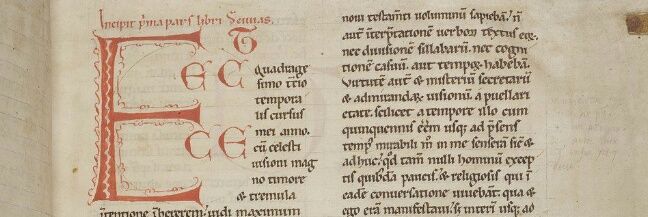 Incipit p̄ma pars libri Sciuias.
E T
E C
C E
quadrage
simo t̄tio
tempora
lis cursus
mei anno.
cū celesti
uisioni mag
no timore
& tremula
intentione īhererem. uidi maximum
noui testam̄ti uoluminū sapiebā. n̄
aut̄ īterp̄tationē uerborū textus eoꝝ.
nec diuisionē sillabarū. nec cogni
tionē casuū. aut tempoꝝ habebā.
Virtutē aut̄ & misteriū secretarū
& admirandaꝝ uisionū. a puellari
etate. scilicet a tempore illo cum
quinquennis eēm usqꝫ ad p̄sens
temp9 mirabili m̄ in me senserā sic̄ &
adhuc. qd̄ tam̄ nulli hominū excep
tis quibdā paucis. & religiosis qui ī
eadē conuersatione uiuebāt qua &
ego erā manifestaui. sz̄ interī usqꝫ ad